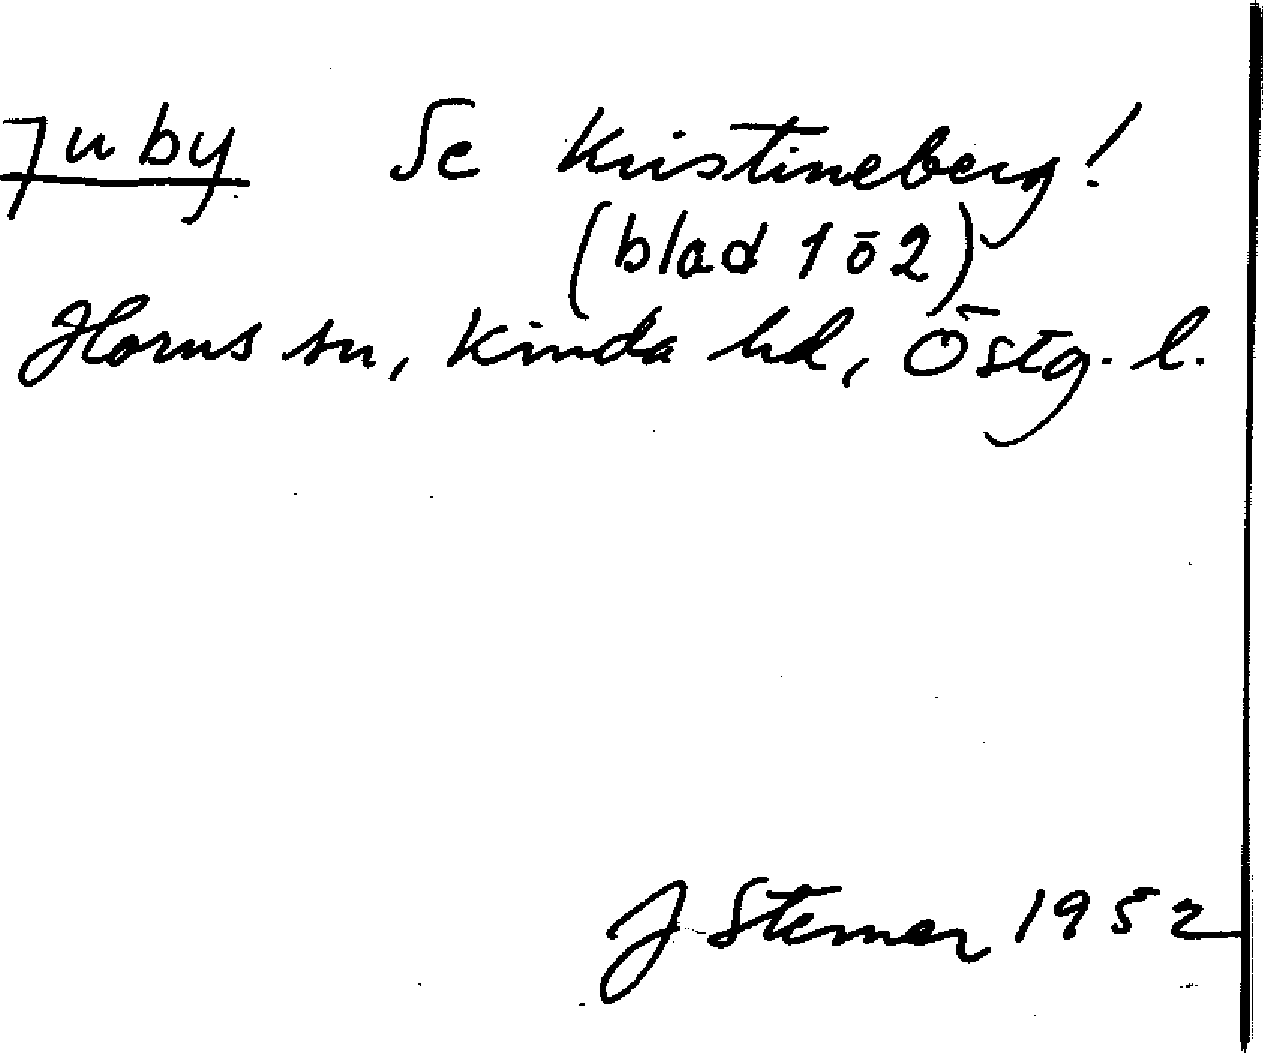 Juby Se Kristineberg!
(blad 1 o 2)
Horns sn, Kinda hd, Östg. l.
J Sterner 1952